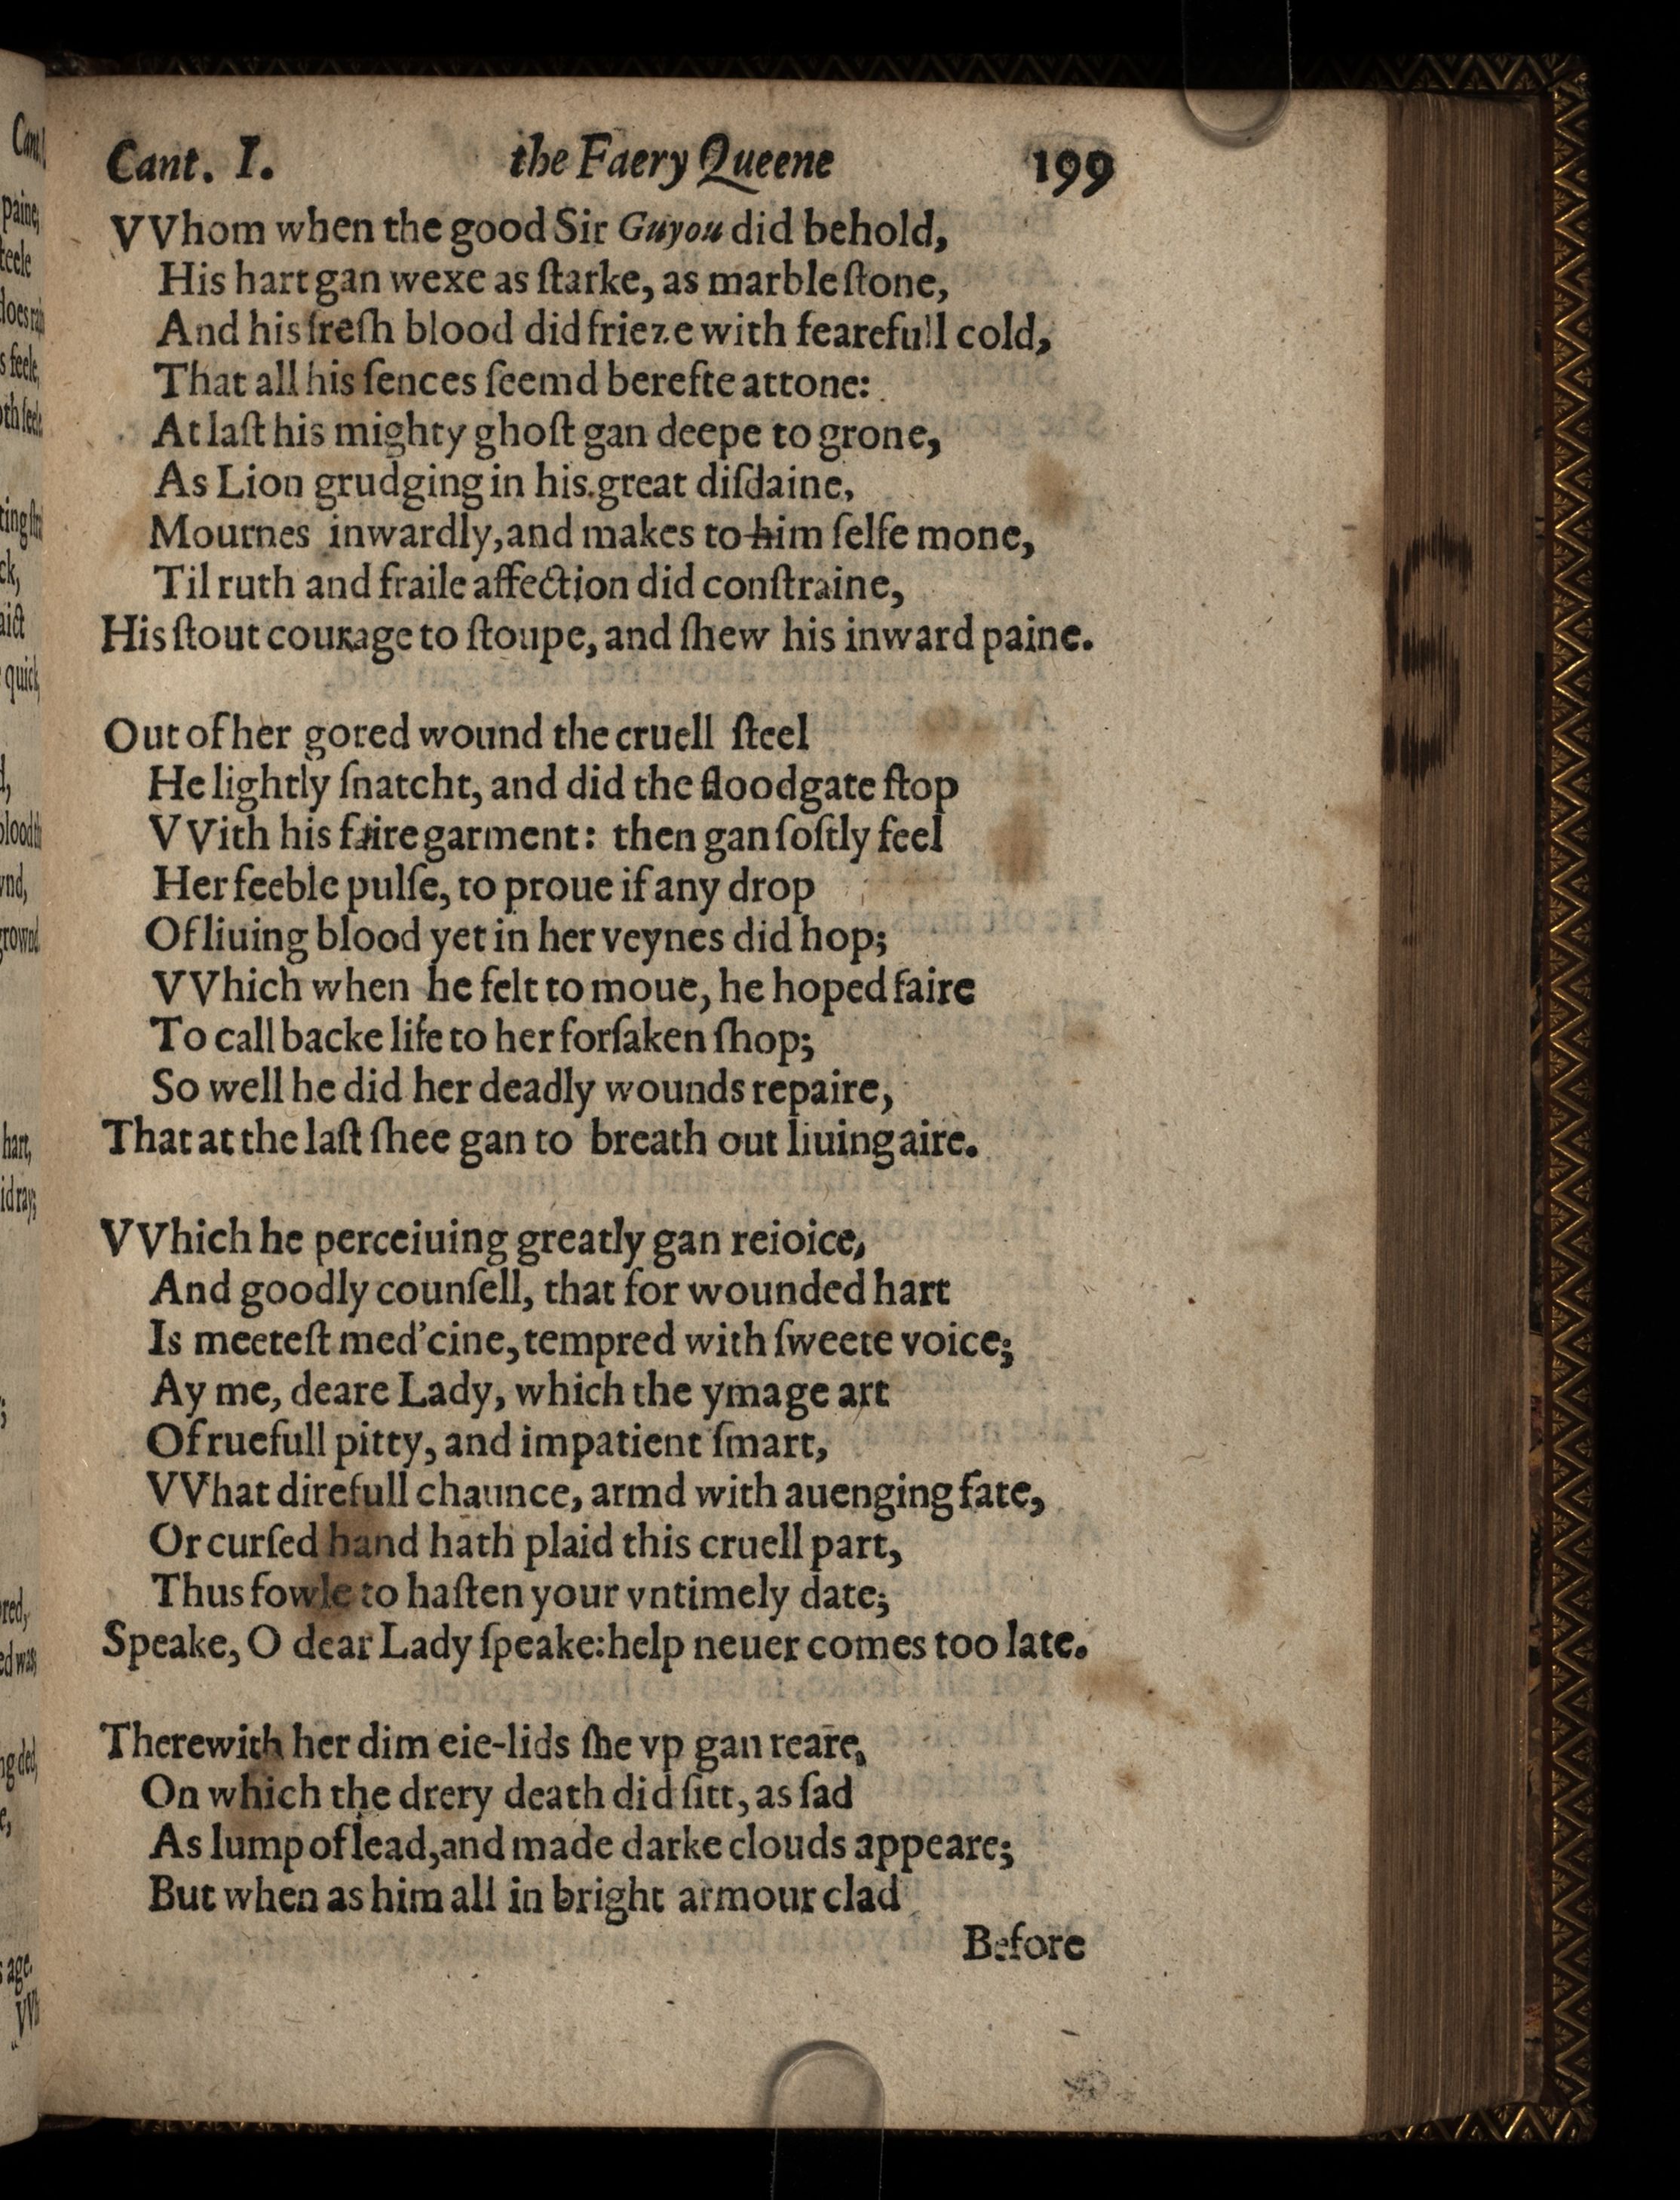 Cant. I. the Faery Queene 199
VVhom when the good Sir Guyou did behold,
His hart gan wexe as ſtarke, as marble ſtone,
And his freſh blood did frieze with fearefull cold,
That all his ſences ſeemd berefte attone:
At laſt his mighty ghoſt gan deepe to grone,
As Lion grudging in his great diſdaine,
Mournes inwardly, and makes to him ſelfe mone,
Til ruth and fraile affection did conſtraine,
His ſtout courage to ſtoupe, and ſhew his inward paine.
Out of her gored wound the cruell ſteel
He lightly ſnatcht, and did the floodgate ſtop
VVith his faire garment: then gan ſoftly feel
Her feeble pulſe, to proue if any drop
Of liuing blood yet in her veynes did hop;
VVhich when he felt to moue, he hoped faire
To call backe life to her forſaken ſhop;
So well he did her deadly wounds repaire,
That at the laſt ſhee gan to breath out liuing aire.
VVhich he perceiuing greatly gan reioice,
And goodly counſell, that for wounded hart
Is meeteſt med'cine, tempred with ſweete voice;
Ay me, deare Lady, which the ymage art
Of ruefull pitty, and impatient ſmart,
VVhat direfull chaunce, armd with auenging fate,
Or curſed hand hath plaid this cruell part,
Thus fowle to haſten your vntimely date;
Speake, O dear Lady ſpeake: help neuer comes too late.
Therewith her dim eie-lids ſhe vp gan reare,
On which the drery death did ſitt, as ſad
As lump of lead, and made darke clouds appeare;
But when as him all in bright armour clad
Before